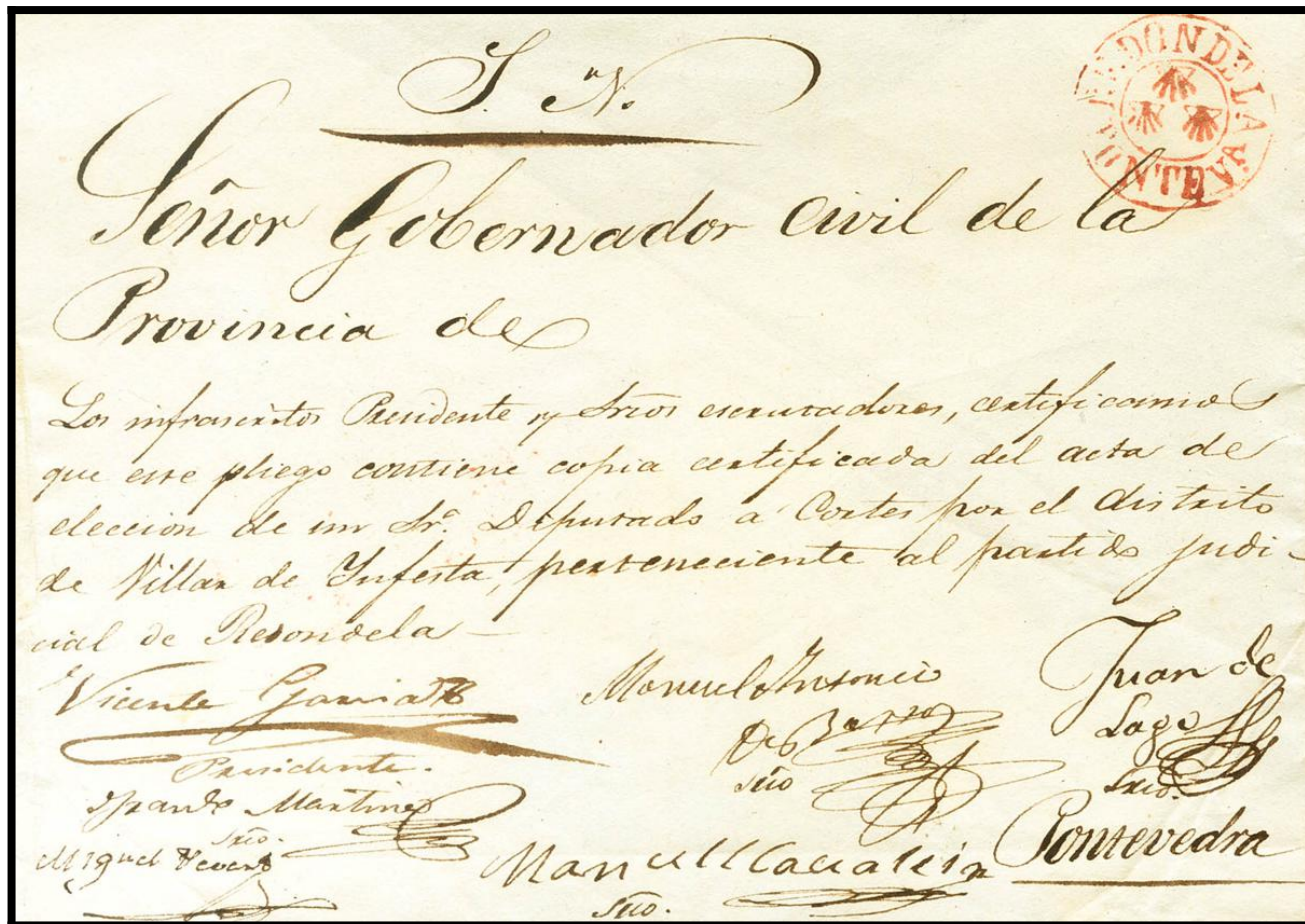 S. N.
REDONDELA
PONTEVA
Señor Gobernador Civil de la
Provincia de
Los infrascritos Presidente y Srios escrutadores, certificamos
que este pliego contiene copia certificada del acta de
elección de un Sr. Deputado a Cortes por el distrito
de Villar de Infesta, perteneciente al partido judi-
cial de Redondela
Vicente Garcia
Presidente.
Manuel Antonio
Srio
Juan de
Lago
Srio.
Martinez
Srio.
Miguel
Manuel
Srio.
Pontevedra